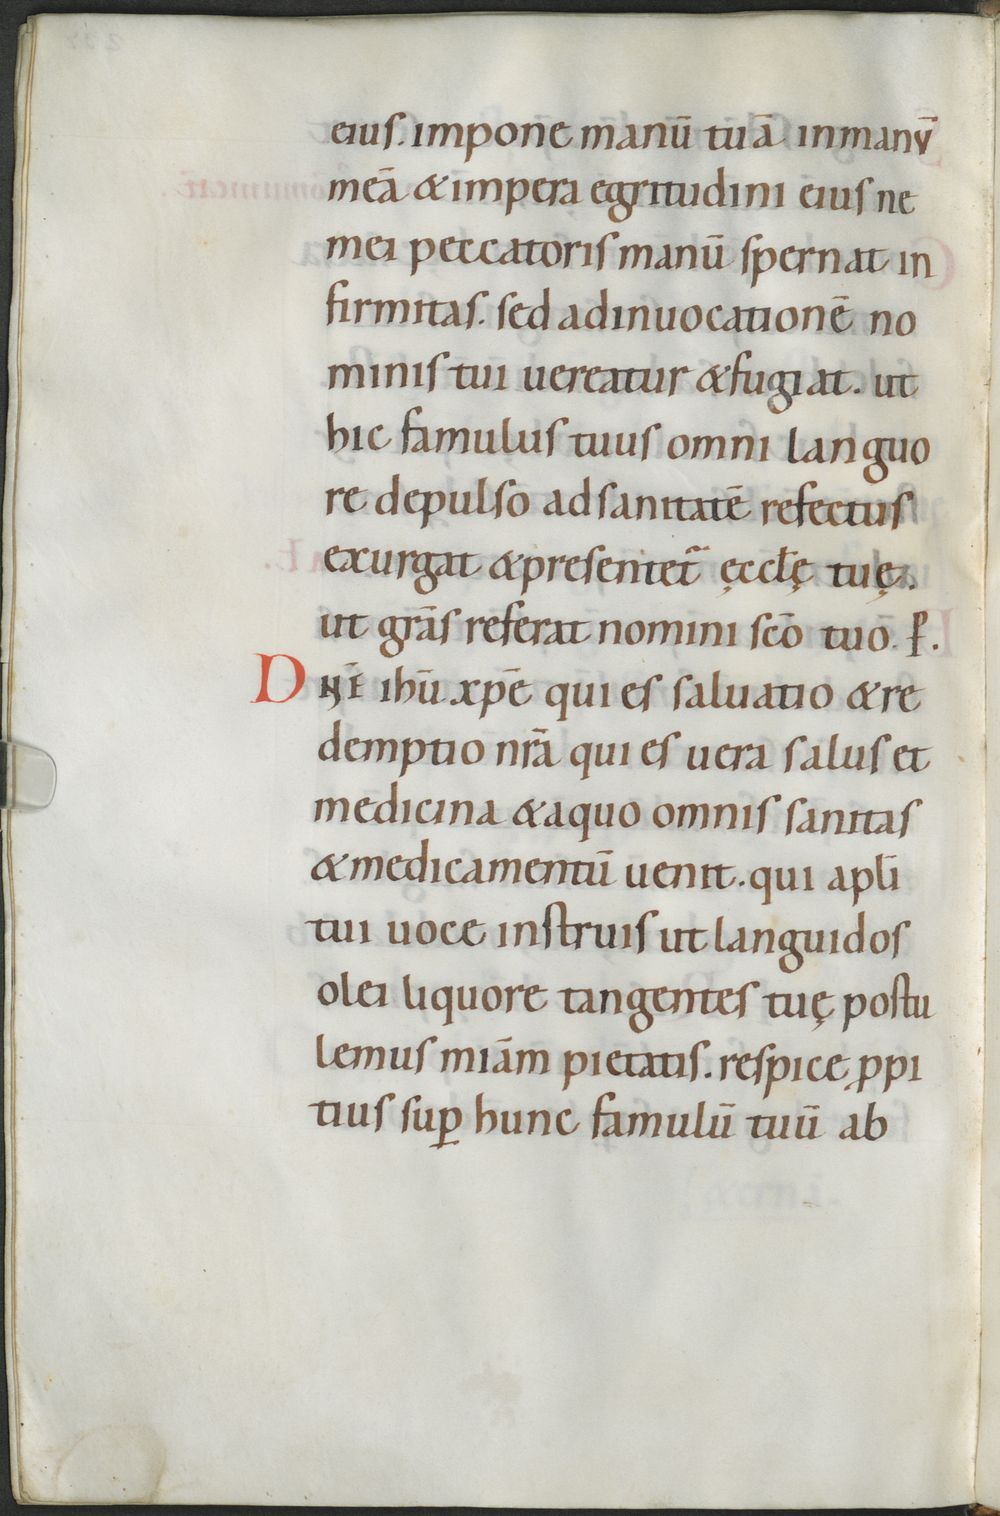 eius. impone manū tuā inmanv̄
meā &impera egritudini eius ne
mei peccatoris manū spernat in
firmitas. sed adinuocationē no
minis tui uereatur &fugiat. ut
hic famulus tuus omni languo
re depulso adsanitatē refectus
exurgat &presentet᷑ ęccłę tuę.
ut grās referat nomini scō tuo. P̄.
DN̄E ihū xp̄e qui es saluatio &re
demptio nr̄a qui es uera salus et
medicina &aquo omnis sanitas
&medicamentū uenit. qui apli̅
tui uoce instruis ut languidos
olei liquore tangentes tuę postu
lemus miām pietatis. respice ꝓpi
tius suꝑ hunc famulū tuū ab